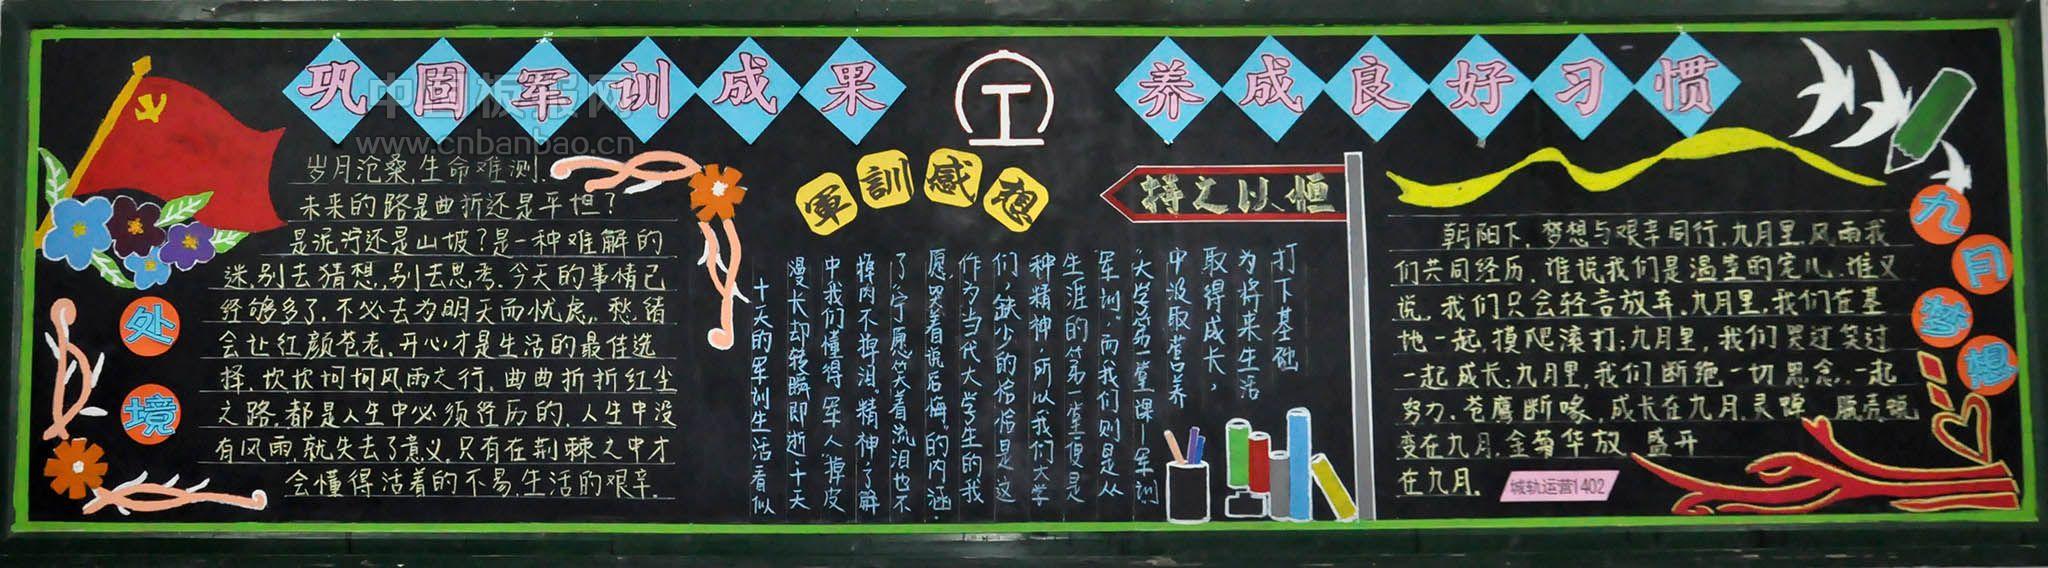 巩固军训成果
养成良好习惯
中国板报网
www.cnbanbao.cn
处境
岁月沧桑,生命难测.
未来的路是曲折还是平坦?
是泥泞还是山坡?是一种难解的
迷,别去猜想,别去思考.今天的事情已
经够多了,不必去为明天而忧虑,愁绪
会让红颜苍老.开心才是生活的最佳选
择.坎坎坷坷风雨之行.曲曲折折红尘
之路.都是人生中必须经历的.人生中没
有风雨,就失去了意义.只有在荆棘之中才
会懂得活着的不易,生活的艰辛.
軍訓感想
十天的军训生活看似
漫长却转瞬即逝,十天
中我们懂得"军人"掉皮
掉肉不掉泪.精神,了解
了"宁愿笑着流泪也不
愿哭着说后悔"的内涵.
作为当代大学生的我
们,缺少的恰恰是这
种精神,所以我们大学
生涯的第一堂便是
军训.而我们则是从
"大学第一堂课—军训
中汲取营养
取得成长,
为将来生活
打下基础
持之以恒
九月梦想
朝阳下,梦想与艰辛同行,九月里,风雨我
们共同经历,谁说我们是温室的宠儿,谁又
说,我们只会轻言放弃.九月里,我们在基
地一起,摸爬滚打;九月里,我们哭过笑过
一起成长;九月里,我们断绝一切思念,一起
努力.苍鹰断喙,成长在九月.灵蝉
变在九月.金菊华放,盛开
在九月.
城轨运营1402